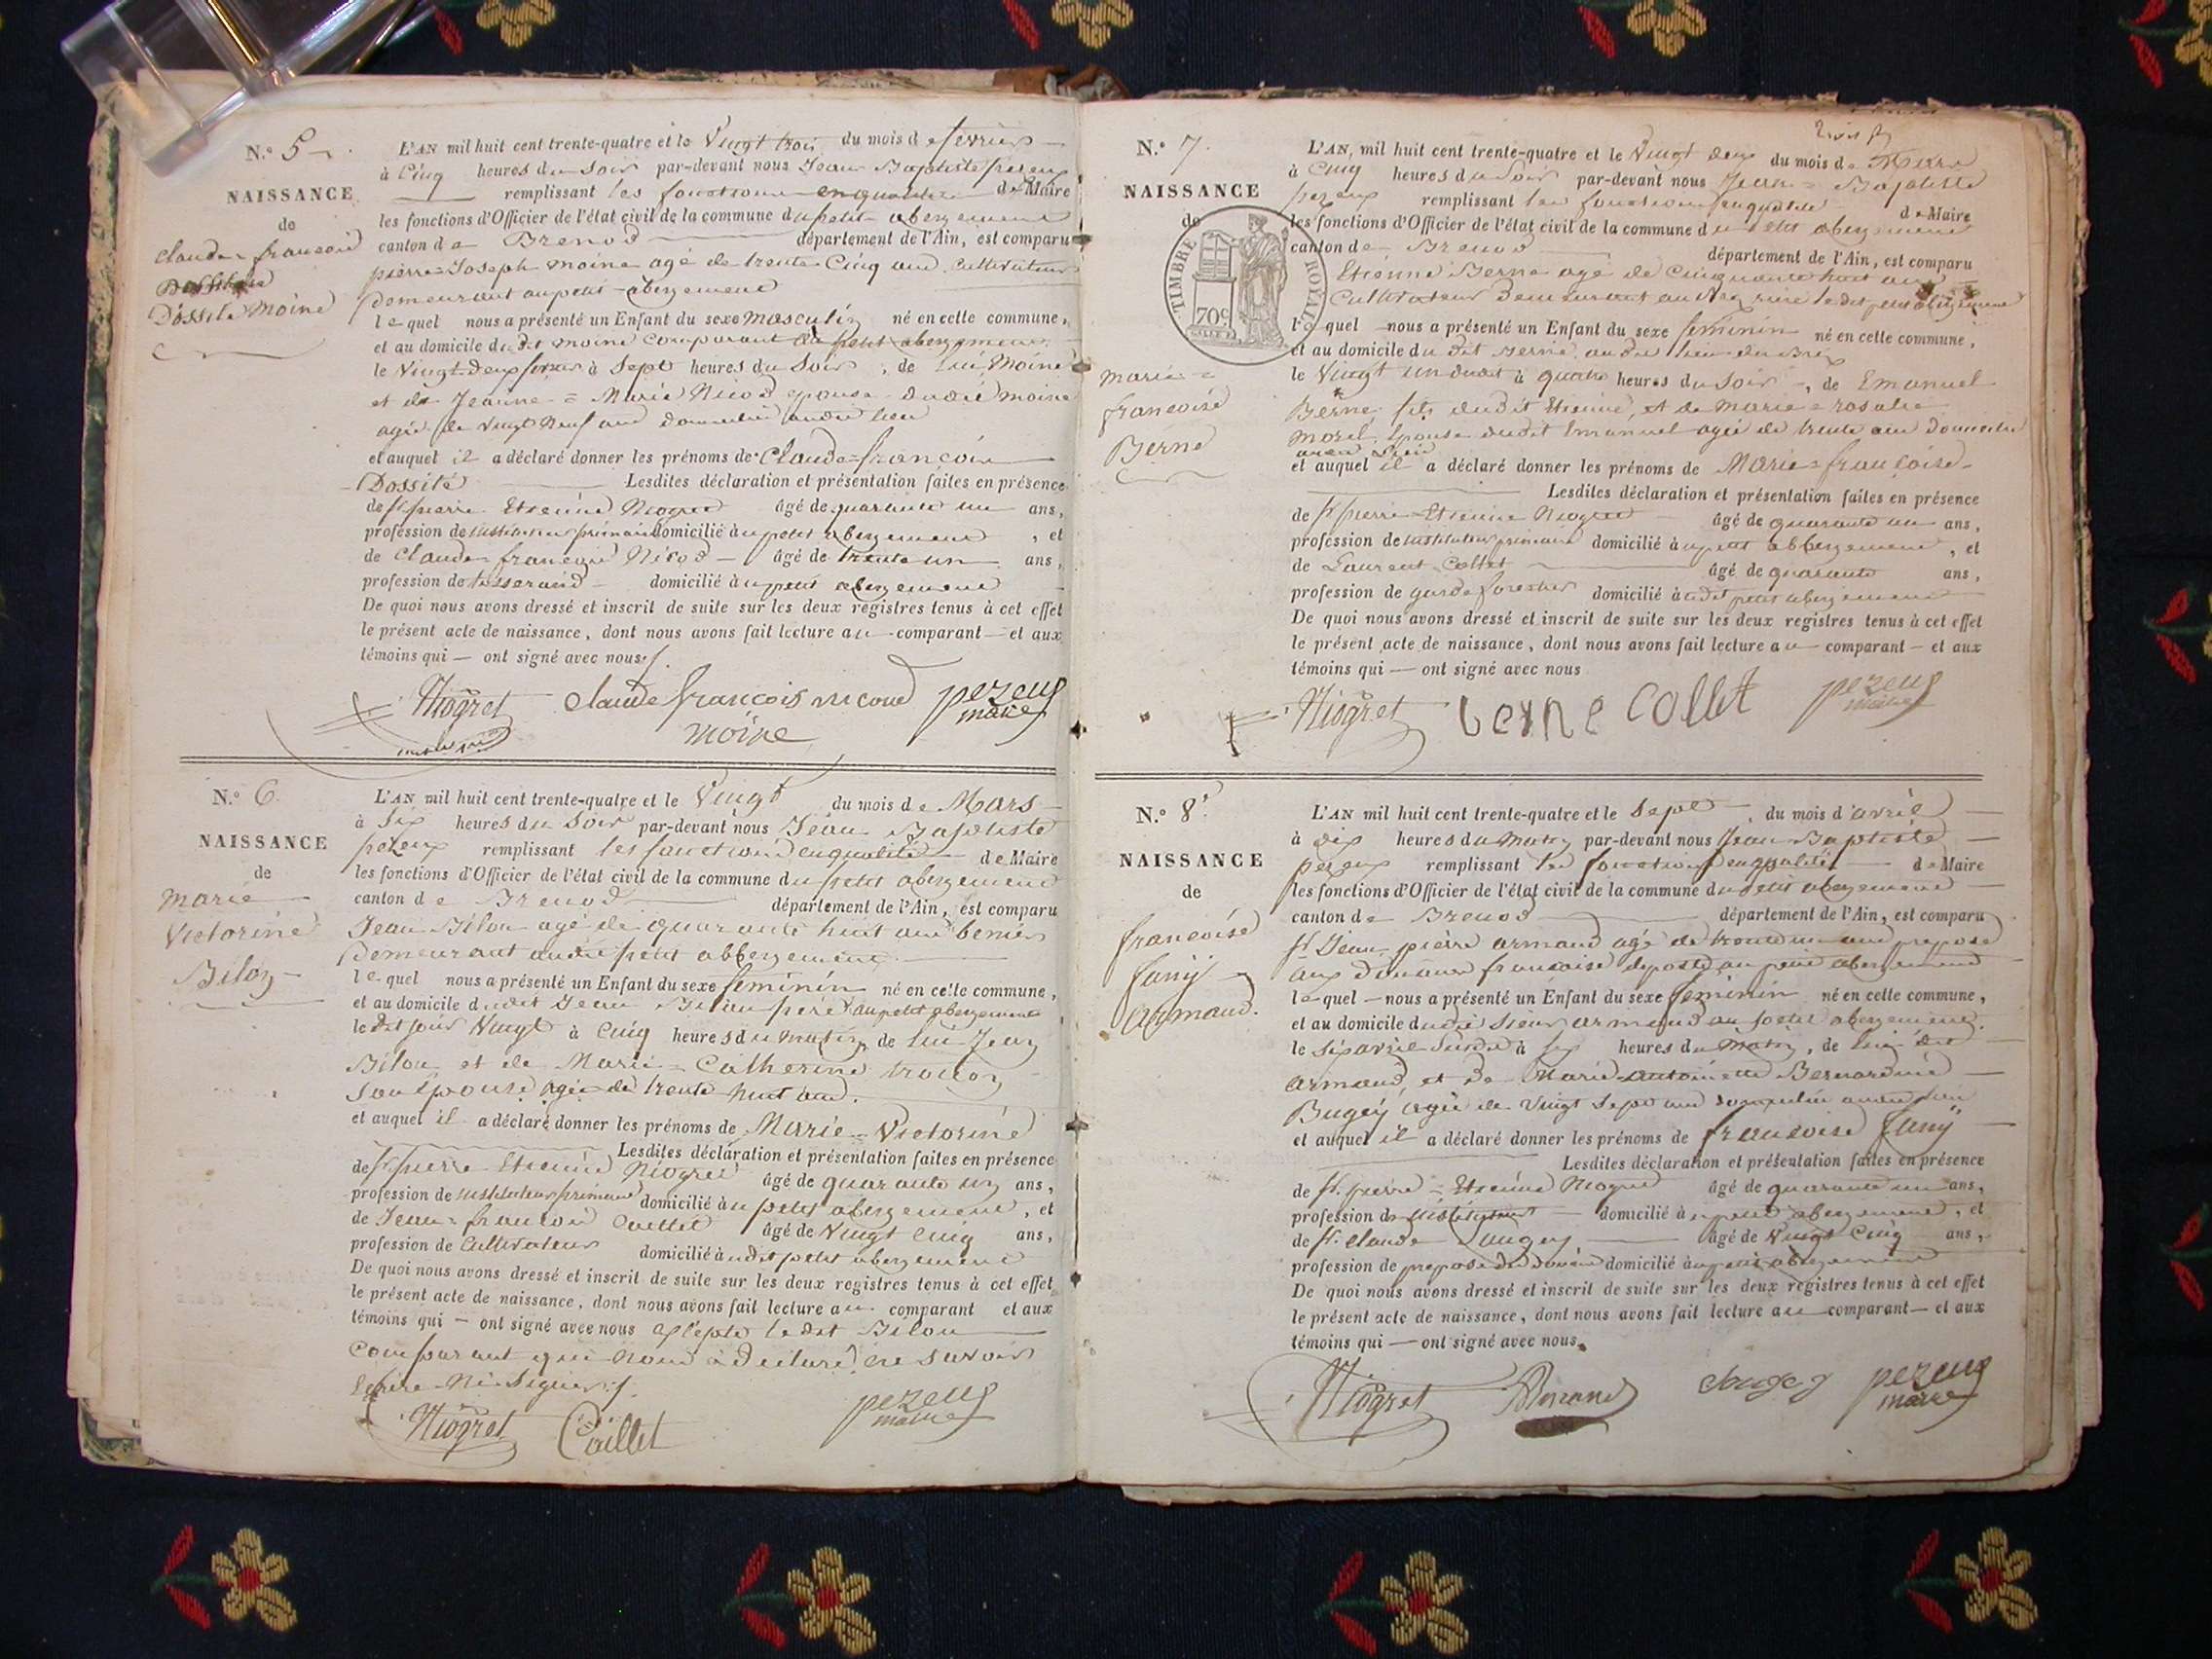 N.° 5
NAISSANCE
de
Claude = françois
Dossité Moine
L'AN mil huit cent trente-quatre et le Vingt trois du mois de fevrier
à Cinq heures du Soir par-devant nous Jean Baptiste pezeux
remplissant les fonctions en qualité de Maire
les fonctions d'Officier de l'état civil de la commune du petit abergement
canton de Brenod département de l'Ain, est comparu
pierre = Joseph moine agé de trente Cinq ans Cultivateur
Demeurant au petit-abergement
lequel nous a présenté un Enfant du sexe masculin né en cette commune,
et au domicile du dit moine comparant au petit abergement
le Vingt-deux à Sept heures du Soir, de lui Moine
et de Jeanne = Marie Nicod epouse dudit moine
agée de Vingt Neuf ans audit lieu
et auquel il a déclaré donner les prénoms de Claude = françois
Dossité Lesdites déclaration et présentation faites en présence
de Sr pierre Etienne Niogret âgé de quarante un ans,
profession de instituteur primaire domicilié au petit abergement, et
de Claude françois Nicod âgé de trente un ans,
profession de tisserand domicilié au petit abergement
De quoi nous avons dressé et inscrit de suite sur les deux registres tenus à cet effet
le présent acte de naissance, dont nous avons fait lecture au comparant et aux
témoins qui ont signé avec nous
Niogret Claude françois nicoud pezeux
maire
moine
N.° 6
NAISSANCE
de
marie
Victorine
Bilon
L'AN mil huit cent trente-quatre et le Vingt du mois de Mars
à Six heures du Soir par-devant nous Jean Baptiste
pezeux remplissant les fonctions en qualité de Maire
les fonctions d'Officier de l'état civil de la commune du petit abergement
canton de Brenod département de l'Ain, est comparu
Jean Bilon agé de quarante huit ans
Demeurant audit petit abbergement
lequel nous a présenté un Enfant du sexe féminin né en cette commune,
et au domicile dudit Jean Bilon père au petit abergement
ledit jour Vingt à Cinq heures du matin, de lui Jean
Bilon et de Marie = Catherine
Son Epouse agée de trente huit ans.
et auquel il a déclaré donner les prénoms de Marie = Victorine
Lesdites déclaration et présentation faites en présence
de Sr pierre Etienne Niogret âgé de quarante un ans,
profession de instituteur primaire domicilié au petit abergement, et
de Jean = françois Caillet âgé de Vingt Cinq ans,
profession de Cultivateur domicilié audit petit abergement
De quoi nous avons dressé et inscrit de suite sur les deux registres tenus à cet effet
le présent acte de naissance, dont nous avons fait lecture au comparant et aux
témoins qui ont signé avec nous excepté ledit Bilon
Comparant qui nous a déclaré ne savoir
Ecrire Ni Signer
Niogret Caillet pezeux
maire
N.° 7.
NAISSANCE
de
TIMBRE ROYAL
70c
marie =
françoise
Berne
L'AN, mil huit cent trente-quatre et le Vingt deux du mois de Mars
à Cinq heures du Soir par-devant nous Jean = Baptiste
pezeux remplissant les fonctions en qualité de Maire
les fonctions d'Officier de l'état civil de la commune du petit abergement
canton de Brenod département de l'Ain, est comparu
Etienne Berne agé de Cinquante huit ans
Cultivateur Demeurant au ledit petit abergement
lequel nous a présenté un Enfant du sexe féminin né en cette commune,
et au domicile du dit Berne, audit lieu
le Vingt un à quatre heures du Soir, de Emanuel
Berne fils dudit Etienne, et de Marie = rosalie
morel Epouse dudit Emanuel agée de trente ans domiciliée
audit lieu
et auquel il a déclaré donner les prénoms de Marie = françoise
Lesdites déclaration et présentation faites en présence
de Sr pierre Etienne Niogret âgé de quarante un ans,
profession de instituteur primaire domicilié au petit abbergement, et
de Laurent Collet âgé de quarante ans,
profession de garde forestier domicilié audit petit abergement
De quoi nous avons dressé et inscrit de suite sur les deux registres tenus à cet effet
le présent acte de naissance, dont nous avons fait lecture au comparant et aux
témoins qui ont signé avec nous
Niogret berne Collet pezeux
maire
N.° 8.
NAISSANCE
de
françoise
fany
Armand.
L'AN mil huit cent trente-quatre et le Sept du mois d'avril
à dix heures du Matin par-devant nous Jean Baptiste
pezeux remplissant les fonctions en qualité de Maire
les fonctions d'Officier de l'état civil de la commune du petit abergement
canton de Brenod département de l'Ain, est comparu
Sr Jean pierre armand agé de trente un ans préposé
aux Douanes françaises deposte au petit abergement
lequel nous a présenté un Enfant du sexe féminin né en cette commune,
et au domicile dudit Sieur armand au petit abergement.
le Six avril à Six heures du Matin, de lui dit
armand, et de Marie-antoinette Bernardine
Bugey agée de Vingt Sept ans audit lieu
et auquel il a déclaré donner les prénoms de françoise fany
Lesdites déclaration et présentation faites en présence
de Sr. pierre = Etienne Niogret âgé de quarante un ans,
profession de instituteur domicilié au petit abergement, et
de Sr. Claude âgé de Vingt Cinq ans,
profession de préposé des Douanes domicilié au petit abergement
De quoi nous avons dressé et inscrit de suite sur les deux registres tenus à cet effet
le présent acte de naissance, dont nous avons fait lecture au comparant et aux
témoins qui ont signé avec nous.
Niogret Armand pezeux
maire